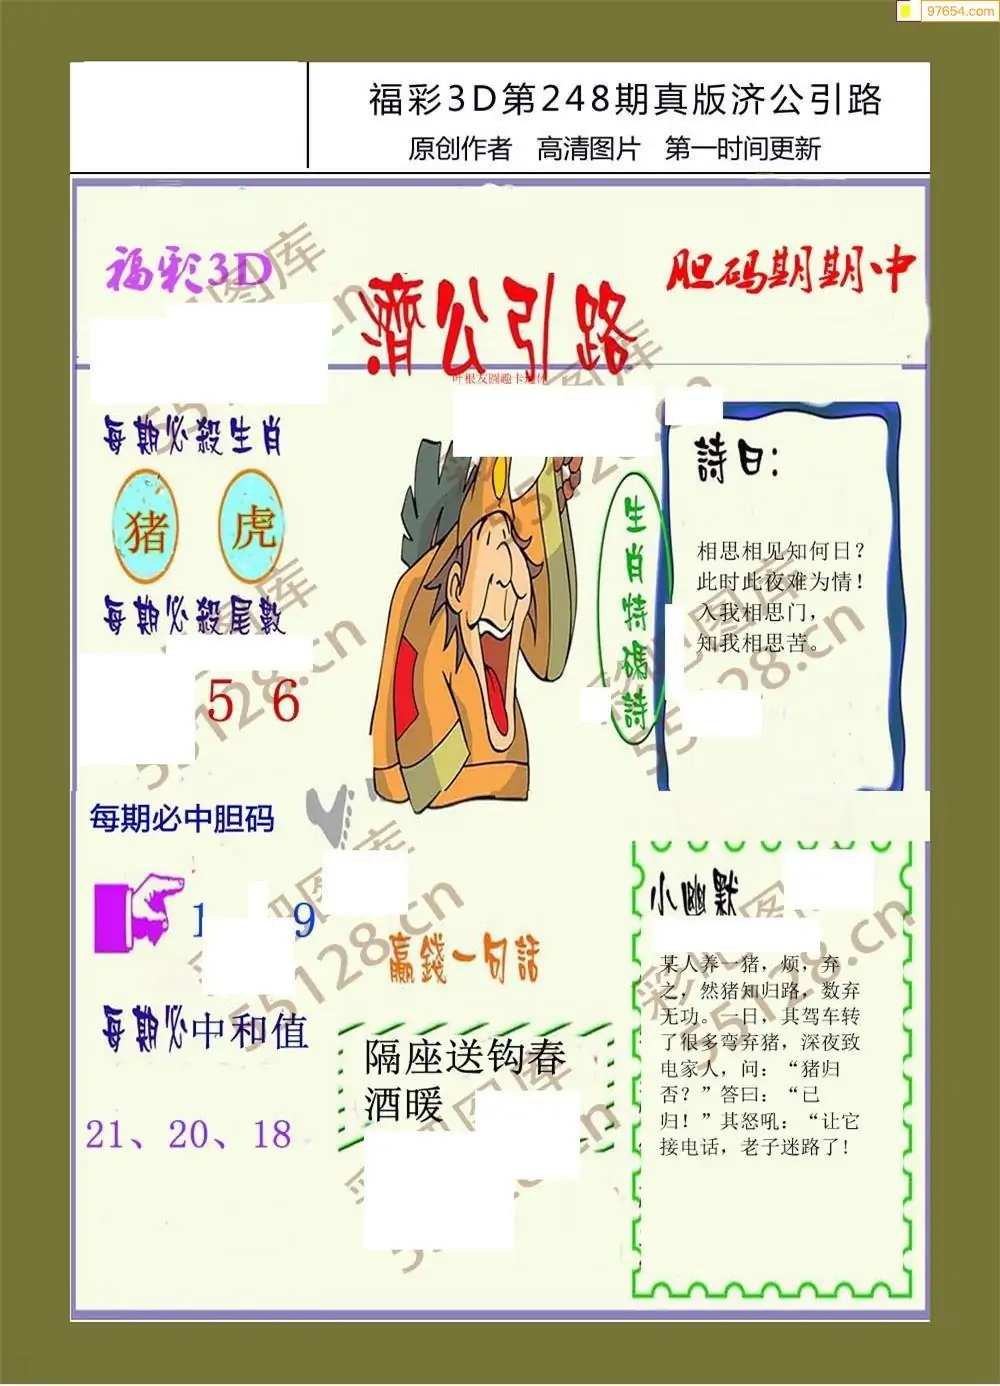 97654.com
福彩3D第248期真版济公引路
原创作者 高清图片 第一时间更新
福彩3D
濟公引路
胆码期期中
每期必殺生肖
猪 虎
每期必殺尾數
5 6
生肖特碼詩
詩曰:
相思相见知何日?
此时此夜难为情!
入我相思门,
知我相思苦。
每期必中胆码
1 9
每期必中和值
21、20、18
贏錢一句話
隔座送钩春
酒暖
小幽默
某人养一猪，烦，弃
之，然猪知归路，数弃
无功。一日，其驾车转
了很多弯弃猪，深夜致
电家人，问：“猪归
否？”答曰：“已
归！”其怒吼：“让它
接电话，老子迷路了!
55128.cn